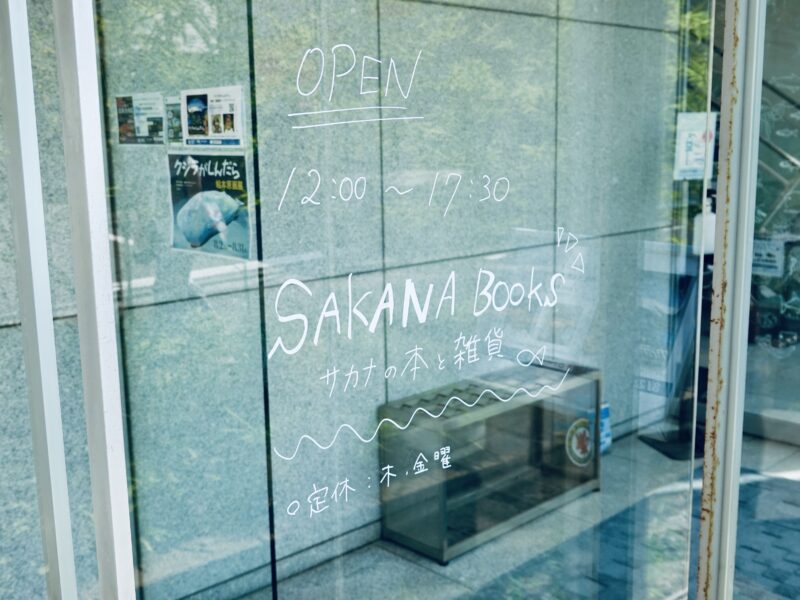 OPEN
12:00 ～ 17:30
SAKANA BOOKS
サカナの本と雑貨
○定休：木、金曜
クジラがしんだら